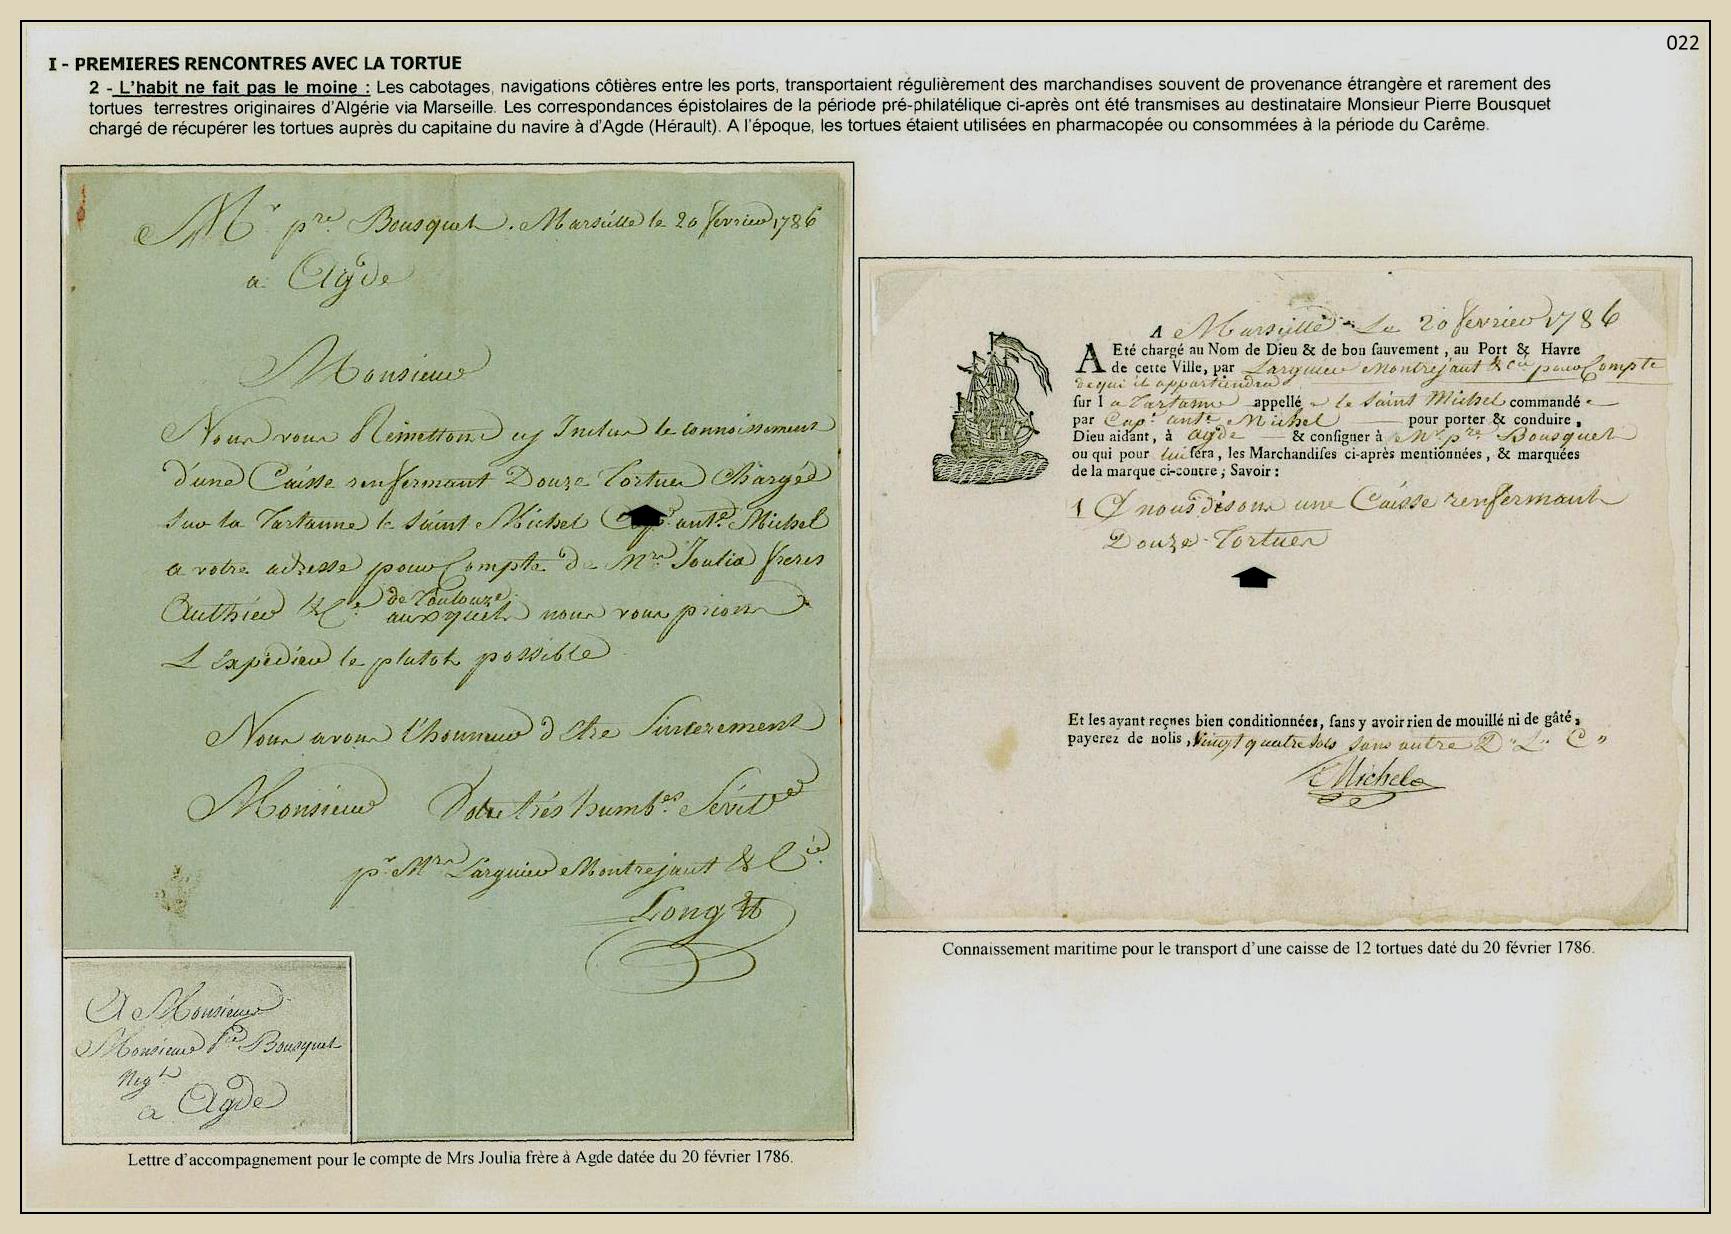 022
I - PREMIERES RENCONTRES AVEC LA TORTUE
2 - L'habit ne fait pas le moine : Les cabotages, navigations côtières entre les ports, transportaient régulièrement des marchandises souvent de provenance étrangère et rarement des
tortues terrestres originaires d'Algérie via Marseille. Les correspondances épistolaires de la période pré-philatélique ci-après ont été transmises au destinataire Monsieur Pierre Bousquet
chargé de récupérer les tortues auprès du capitaine du navire à d'Agde (Hérault). A l'époque, les tortues étaient utilisées en pharmacopée ou consommées à la période du Carême.
Mr. pre. Bousquet. Marseille le 20 fevrier 1786
a Agde
Monsieur
Nous vous Remettons cy Inclus le connoissement
d'une Caisse renfermant Douze Tortues Chargée
sur la Tartanne le Saint Michel Cap. ante. Michel
a votre adresse pour Compte de Mrs Joulia freres
Authier & Ce. de Toulouze
auxquels nous vous prions
L'Expedier le plutot possible
Nous avons l'honneur d'Etre Sincerement
Monsieur Votre trés humbes. Servit
pr Mrs Larguier Montrejaut & Cie.
Long
A Monsieur
Monsieur Pre Bousquet
Negt
a Agde
Lettre d'accompagnement pour le compte de Mrs Joulia frère à Agde datée du 20 février 1786.
A Marseille Le 20 fevrier 1786
A Eté chargé au Nom de Dieu & de bon ſauvement, au Port & Havre
de cette Ville, par Larguier Montrejaut & Cie pour Compte
de qui il appartiendra
ſur l a Tartanne appellé le Saint Michel commandé
par Cap. ante. Michel pour porter & conduire,
Dieu aidant, à agde & conſigner à Mr. pre. Bousquet
ou qui pour lui ſera, les Marchandiſes ci-après mentionnées, & marquées
de la marque ci-contre ; Savoir :
1 C nous disons une Caisse renfermant
Douze Tortues
Et les ayant reçues bien conditionnées, ſans y avoir rien de mouillé ni de gâté,
payerez de nolis, Vingt quatre sols sans autre
Michel
Connaissement maritime pour le transport d'une caisse de 12 tortues daté du 20 février 1786.